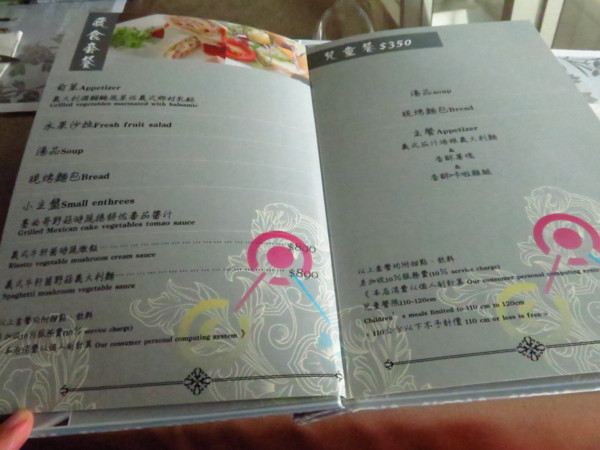 蔬食套餐
前菜Appetizer
義大利油醋醃蔬菜佐義式鄉村乳酪
Grilled vegetables marinated with balsamic
水果沙拉Fresh fruit salad
湯品Soup
現烤麵包Bread
小主盤Small enthrees
墨西哥野菇時蔬捲餅佐番茄醬汁
Grilled Mexican cake vegetables tomao sauce
義式牛肝菌時蔬燉飯 $800
Risotto vegetable mushroom cream sauce
義式牛肝菌野菇義大利麵 $800
Spaghetti mushroom vegetable sauce
以上套餐均附甜點、飲料
另加收10%服務費(10% service charge)
《本店消費以個人制計算 Our consumer personal computing system》
兒童餐 $350
湯品soup
現烤麵包Bread
主餐Appetizer
義式茄汁培根義大利麵
&
香酥薯塊
&
香酥卡啦雞腿
以上套餐均附甜點、飲料
另加收10%服務費(10% service charge)
《本店消費以個人制計算 Our consumer personal computing system
兒童餐限110-120cm
Children's meals limited to 110 cm to 120cm
110公分以下不予計價 110 cm or less is free